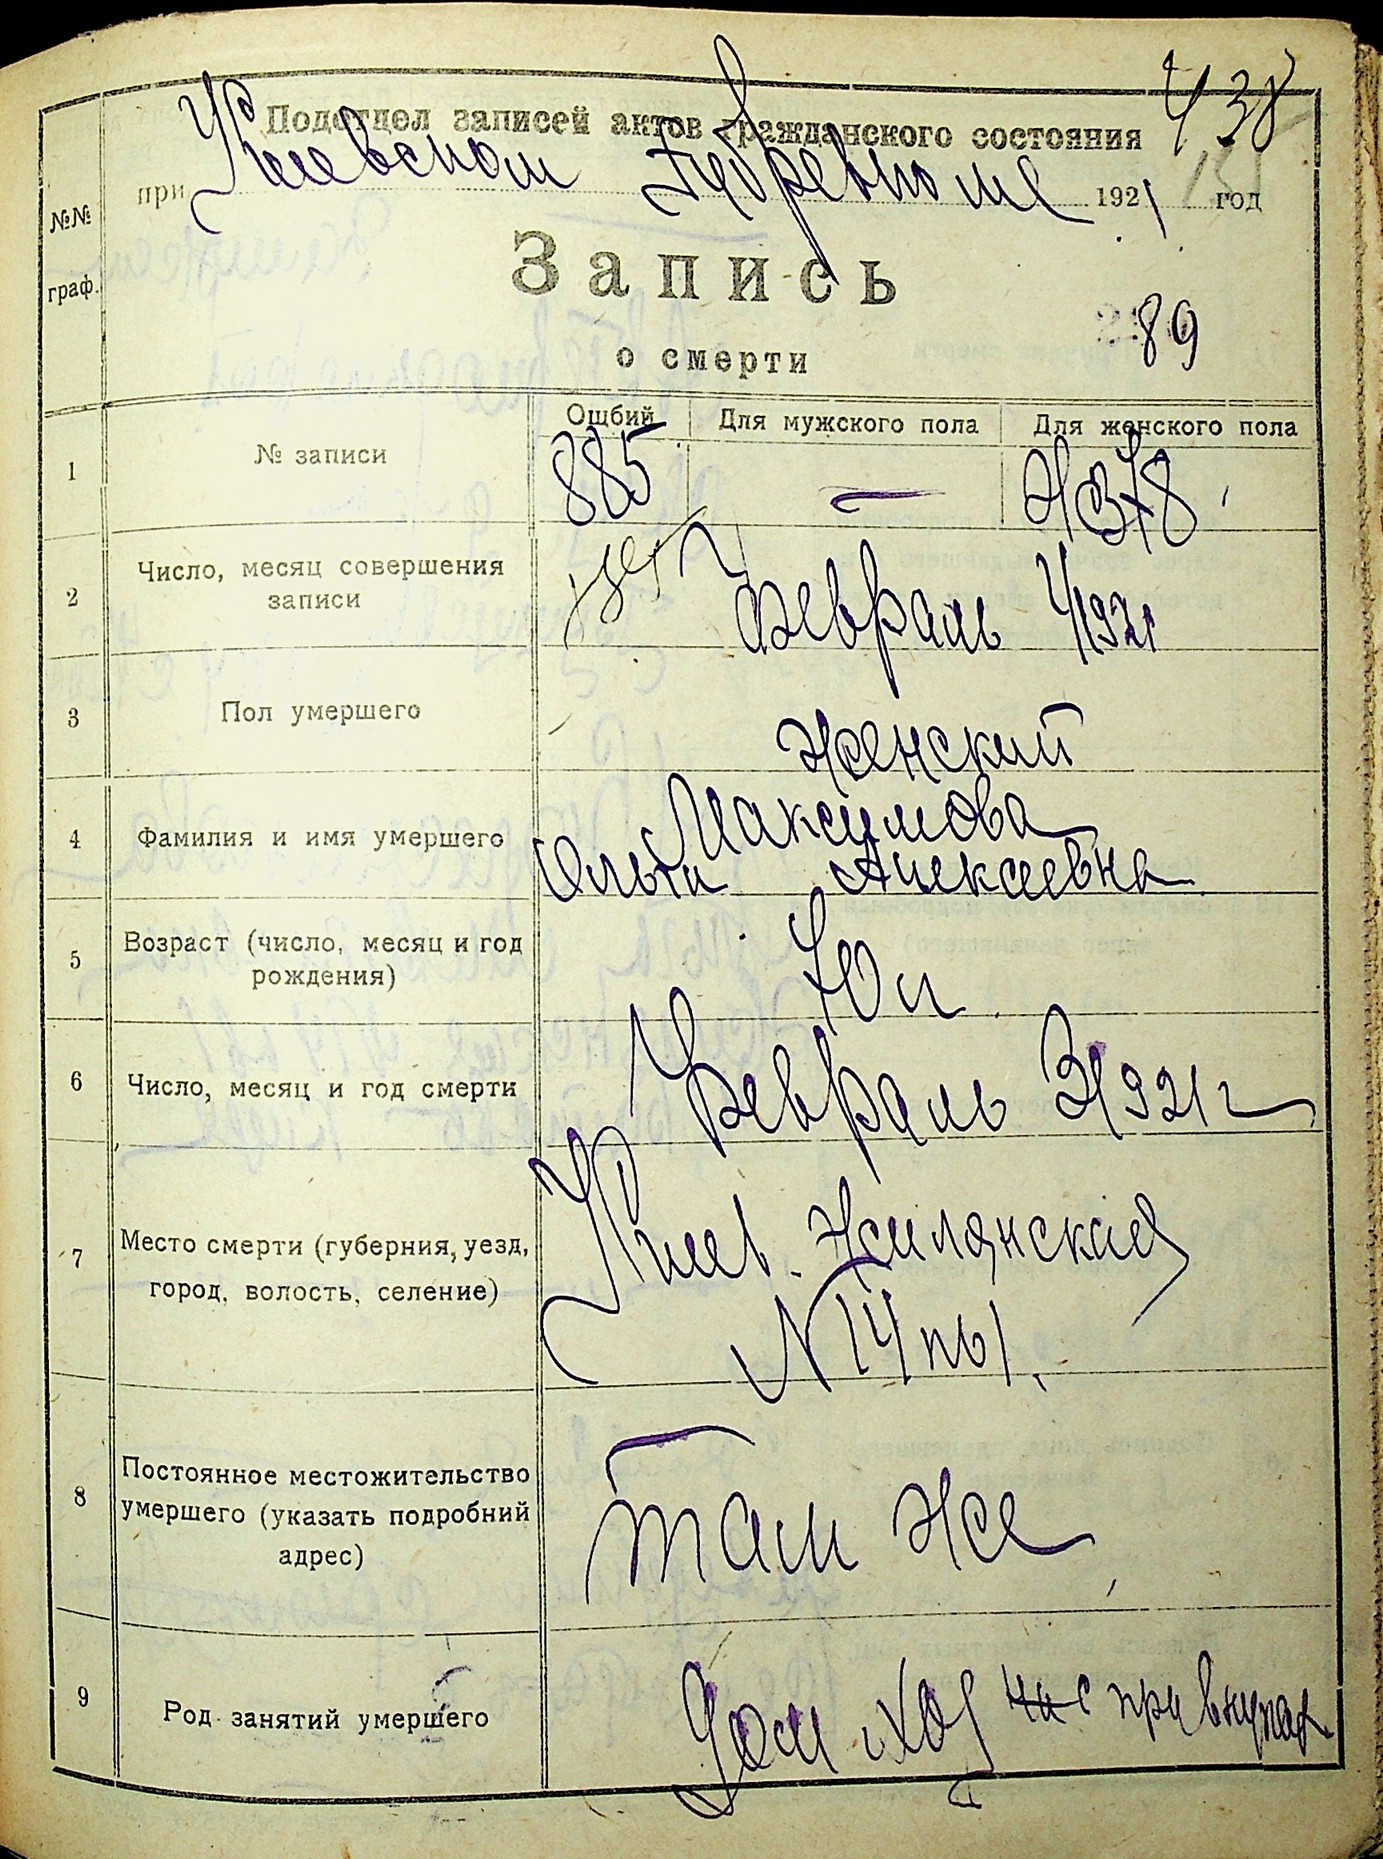 438
Подотдел записей актов гражданского состояния
при Киевском Губревкоме 1921 год
№№
граф.
Запись
о смерти
89
Ощбий Для мужского пола Для женского пола
1 № записи 885 — Ж378
2 Число, месяц совершения
записи
Февраль 4/1921
3 Пол умершего Женский
4 Фамилия и имя умершего
Максимова
Ольга Алексеевна
5 Возраст (число, месяц и год
рождения)
70 л
6 Число, месяц и год смерти Февраль 3/1921 г
7 Место смерти (губерния, уезд,
город, волость, селение)
Киев. Жилянская
N 14 кв 1.
8 Постоянное местожительство
умершего (указать подробний
адрес)
Там же
9 Род занятий умершего Дом хоз